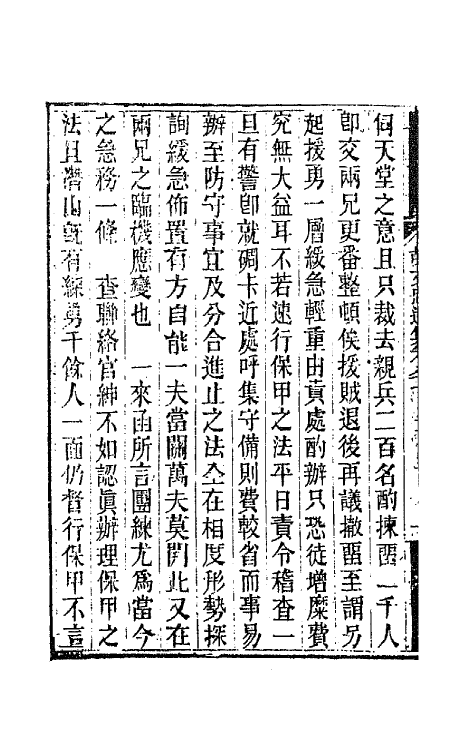 伺天堂之意且只裁去親兵二百名酌揀留一千人
卽交兩兄更番整頓俟援賊退後再議撤留至謂另
起援勇一層緩急輕重由貴處酌辦只恐徒增糜費
究無大益耳不若速行保甲之法平日責令稽查一
旦有警卽就碉卡近處呼集守備則費較省而事易
辦至防守事宜及分合進止之法全在相度形勢探
詢緩急佈置有方自能一夫當關萬夫莫開此又在
兩兄之臨機應變也　一來函所言團練尤爲當今
之急務一條　查聯絡官紳不如認眞辦理保甲之
法且潛山旣有練勇千餘人一面仍督行保甲不言